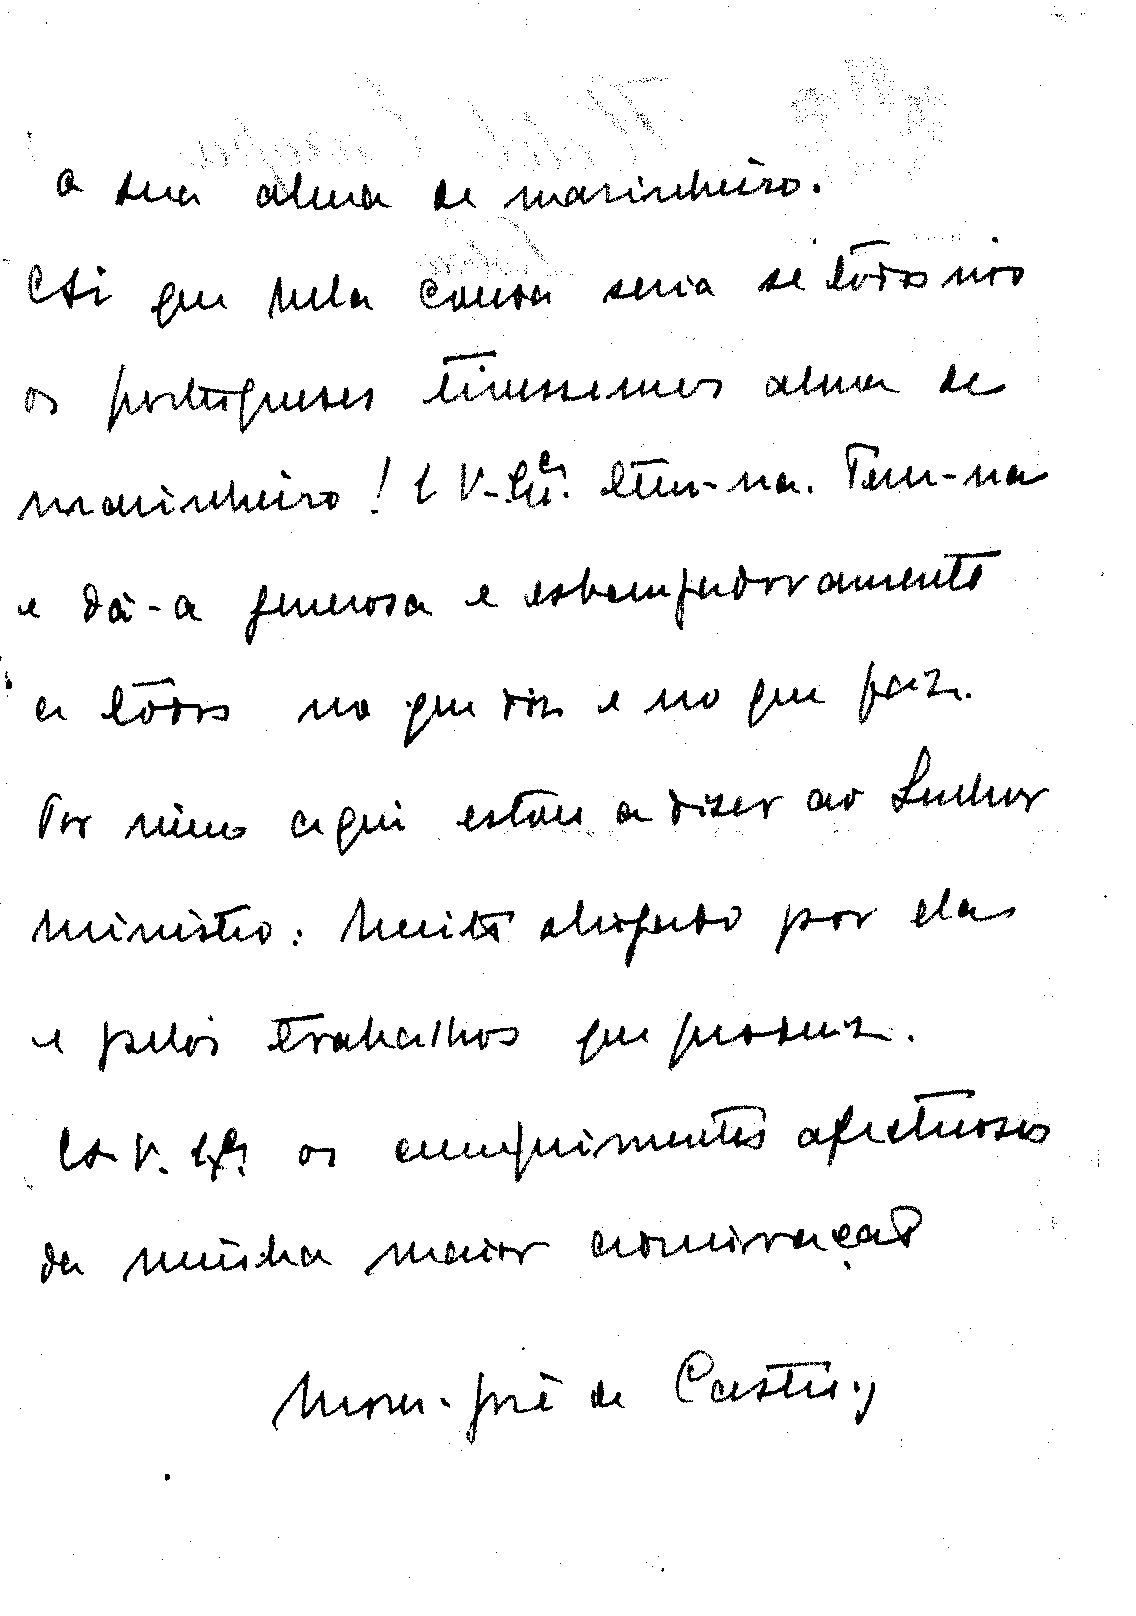 a sua alma de marinheiro.
Ai que bela cousa seria se todos nós
os portugueses tivessemos alma de
marinheiro! E V. Exª. tem-na. Tem-na
e dá-a generosa e
a todos no que diz e no que faz.
Por mim aqui estou a dizer ao Senhor
Ministro: Muito obrigado por ela
e pelos trabalhos que produz.
A V. Exª os cumprimentos afectuosos
da minha maior admiração
José de Castro